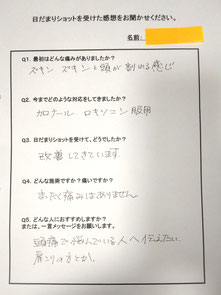 日だまりショットを受けた感想をお聞かせください。
名前:
Q1. 最初はどんな痛みがありましたか？
ズキン ズキンと頭が割れる感じ
Q2. 今までどのような対応をしてきましたか？
カロナール ロキソニン服用
Q3. 日だまりショットを受けて、どうでしたか？
改善してきています
Q4. どんな施術ですか？痛いですか？
まったく痛みはありません。
Q5. どんな人におすすめしますか？
または、一言メッセージをお願いします。
頭痛で悩んでいる人へ伝えたい。
肩こりの方とか。